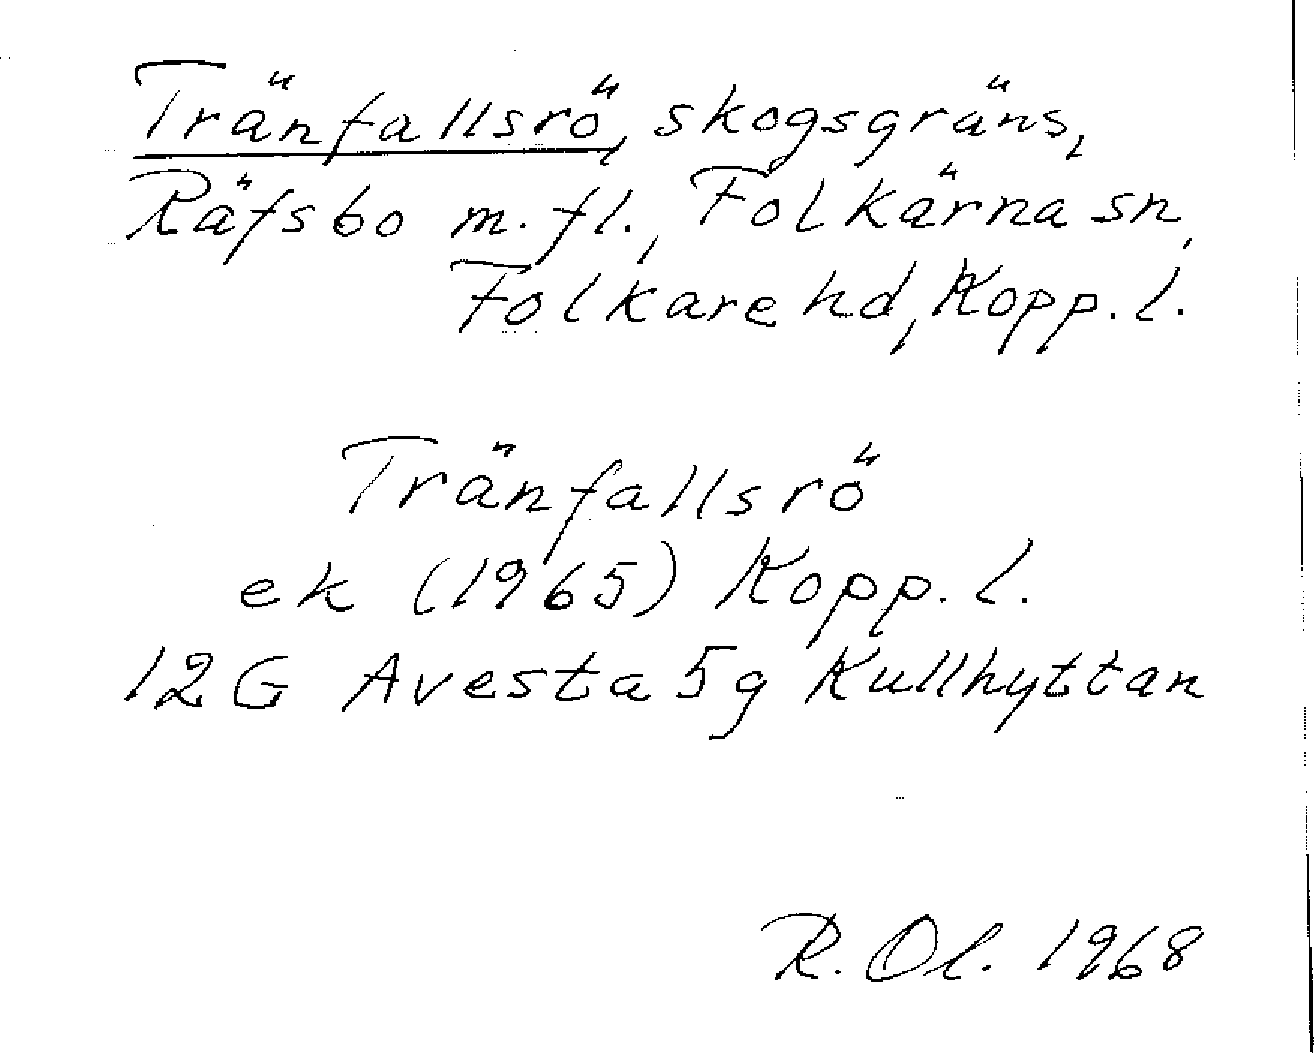 Tränfallsrö, skogsgräns,
Räfsbo m. fl., Folkärna sn,
Folkare hd, Kopp. l.
Tränfallsrö
ek (1965) Kopp. l.
12G Avesta 5g Kullhyttan
R. Ol. 1968